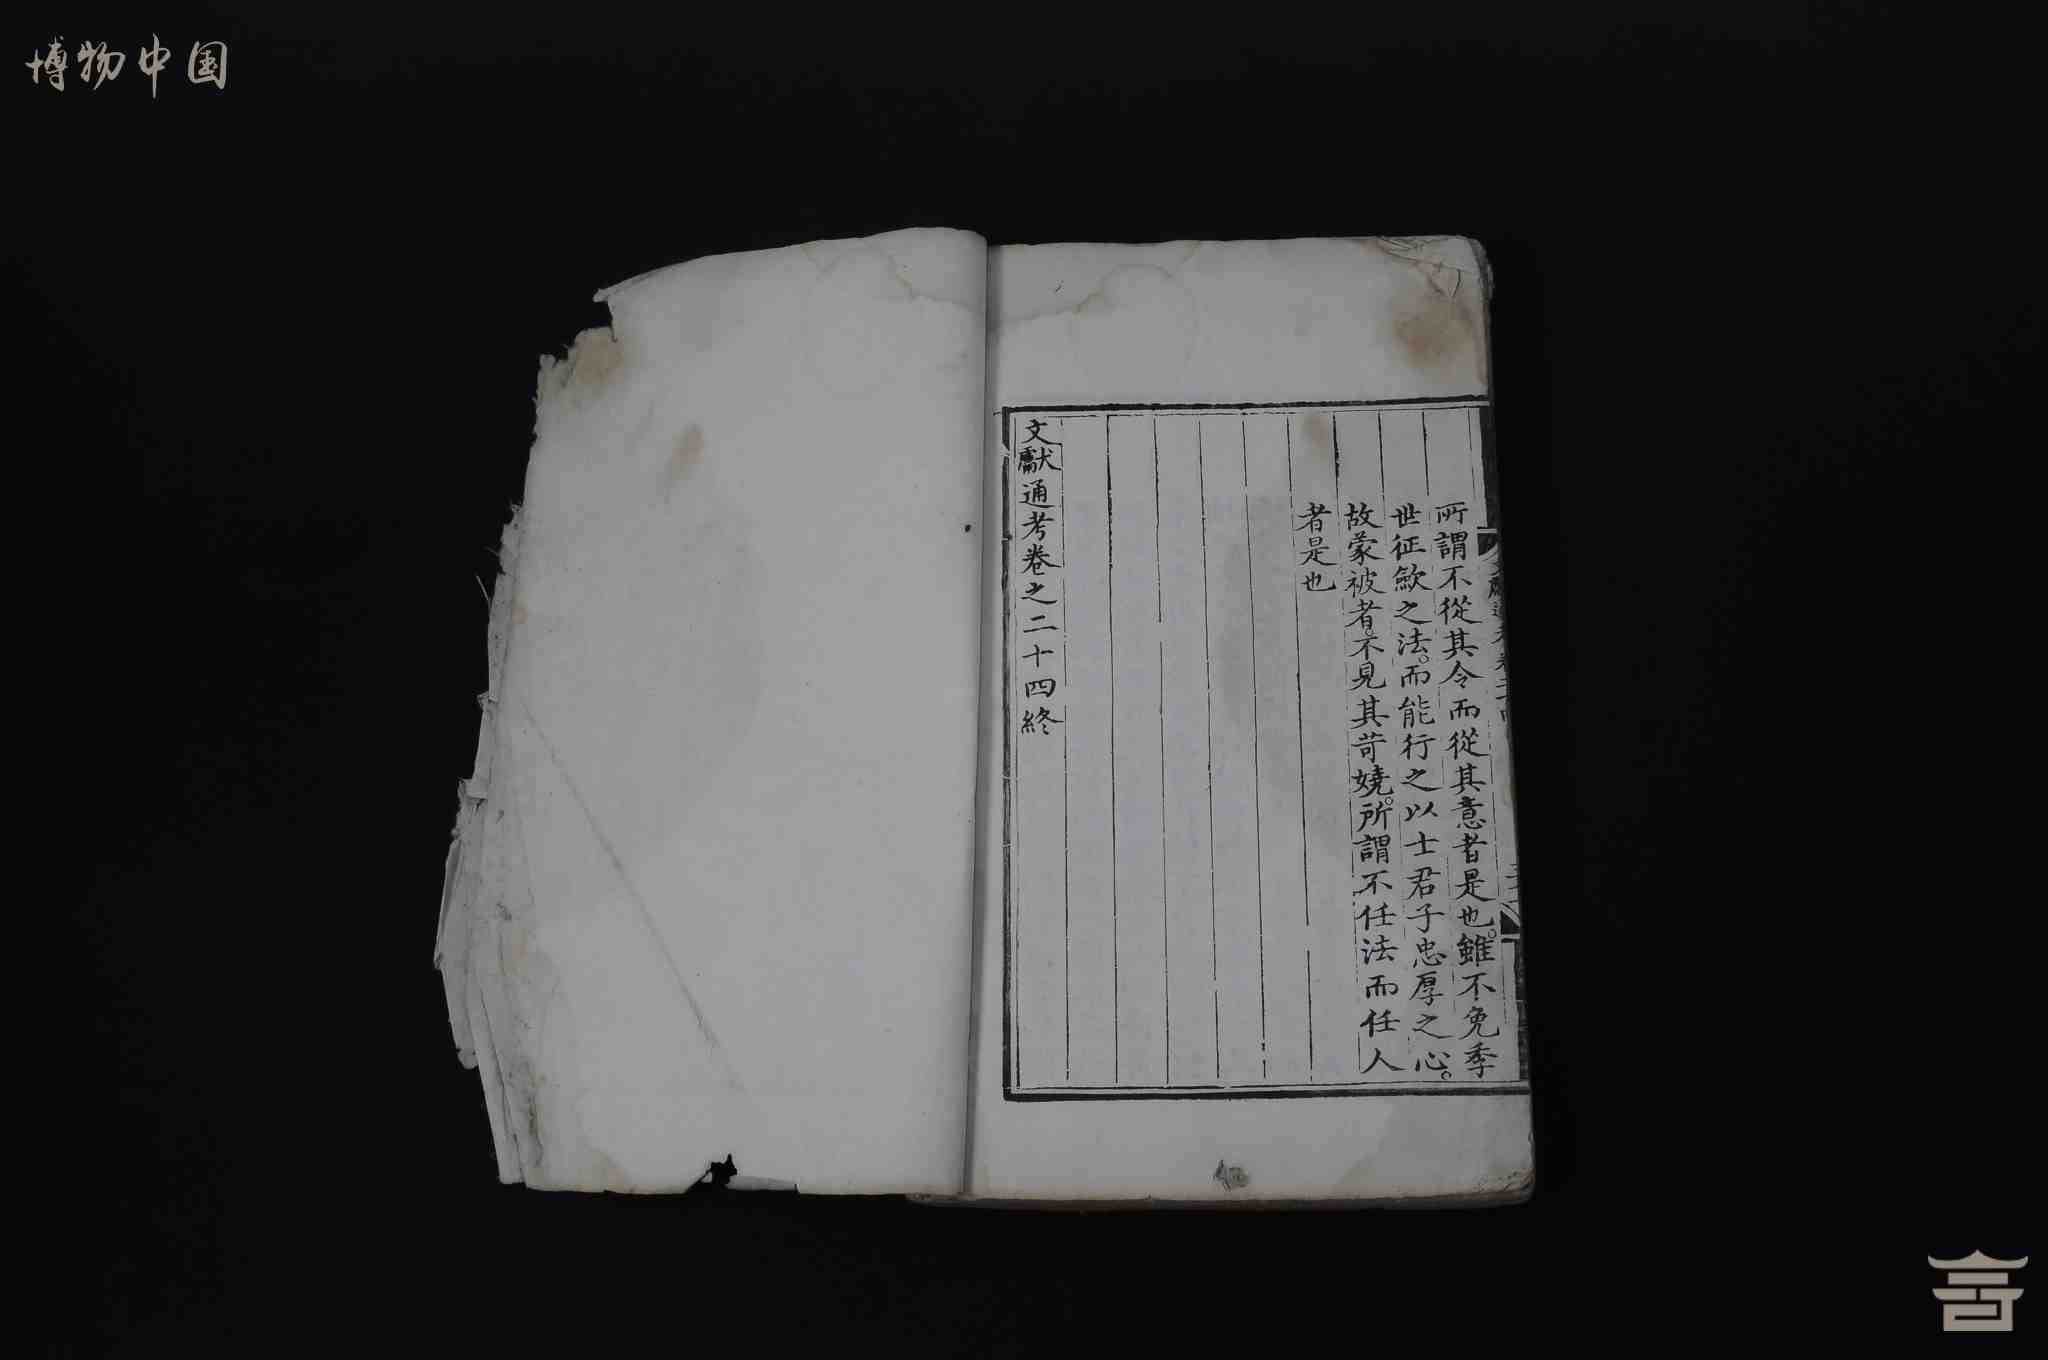 博物中国
所謂不從其令而從其意者是也。雖不免季
世征歛之法。而能行之以士君子忠厚之心。
故蒙被者。不見其苛嬈。所謂不任法而任人
者是也
文獻通考卷之二十四終